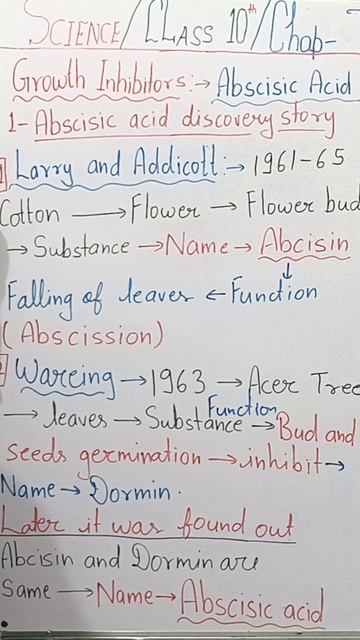 SCIENCE/CLASS 10th/Chap-
Growth Inhibitors:→ Abscisic Acid
1- Abscisic acid discovery story
Larry and Addicott:→ 1961-65
Cotton → Flower → Flower bud
→ Substance → Name → Abcisin
↓
Falling of leaves ← Function
(Abscission)
Wareing → 1963 → Acer Tree
→ leaves → Substance Function → Bud and
seeds germination → inhibit →
Name → Dormin.
Later it was found out
Abcisin and Dormin are
Same → Name → Abscisic acid